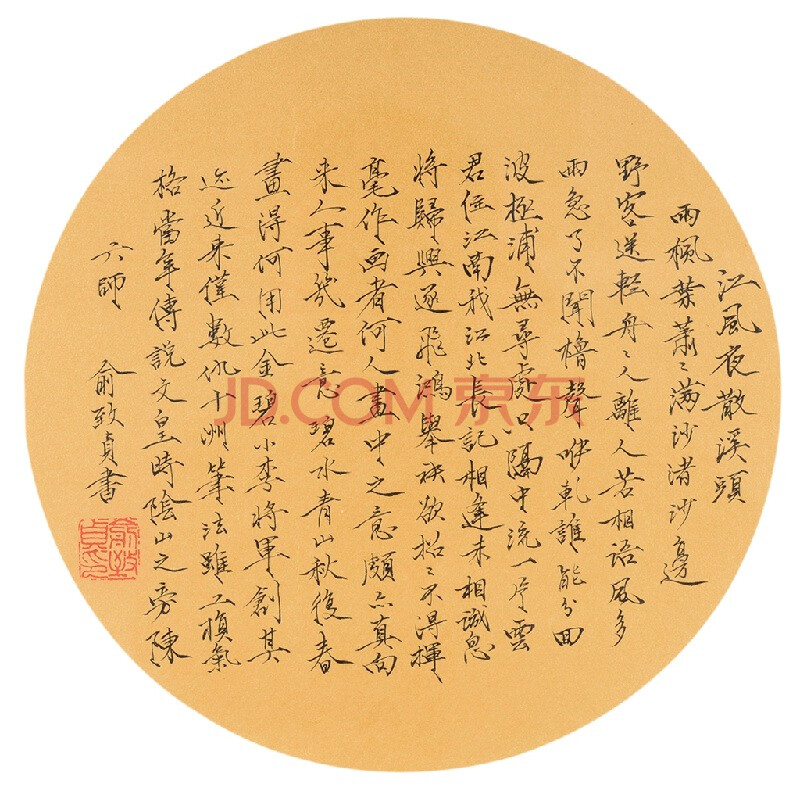 江風夜散溪頭
雨楓葉蕭〻滿沙渚沙邊
野客送輕舟〻人離人苦相語風多
雨急了不聞櫓聲咿軋誰能分回
波極浦〻無尋處只隔中流一片雲
君住江南我江北長記相逢未相識忽
將歸興逐飛鴻舉袂欲招〻不得揮〻
毫作画者何人畫中〻之意頗亦真向
來人事幾遷忘碧水青山秋復春
畫得何用此金碧小李將軍創其
迹近来僅數仇十洲筆法雖工損氣
格當年傳說文皇時陰山之旁陳
六師
俞致貞書
JD.COM 京东